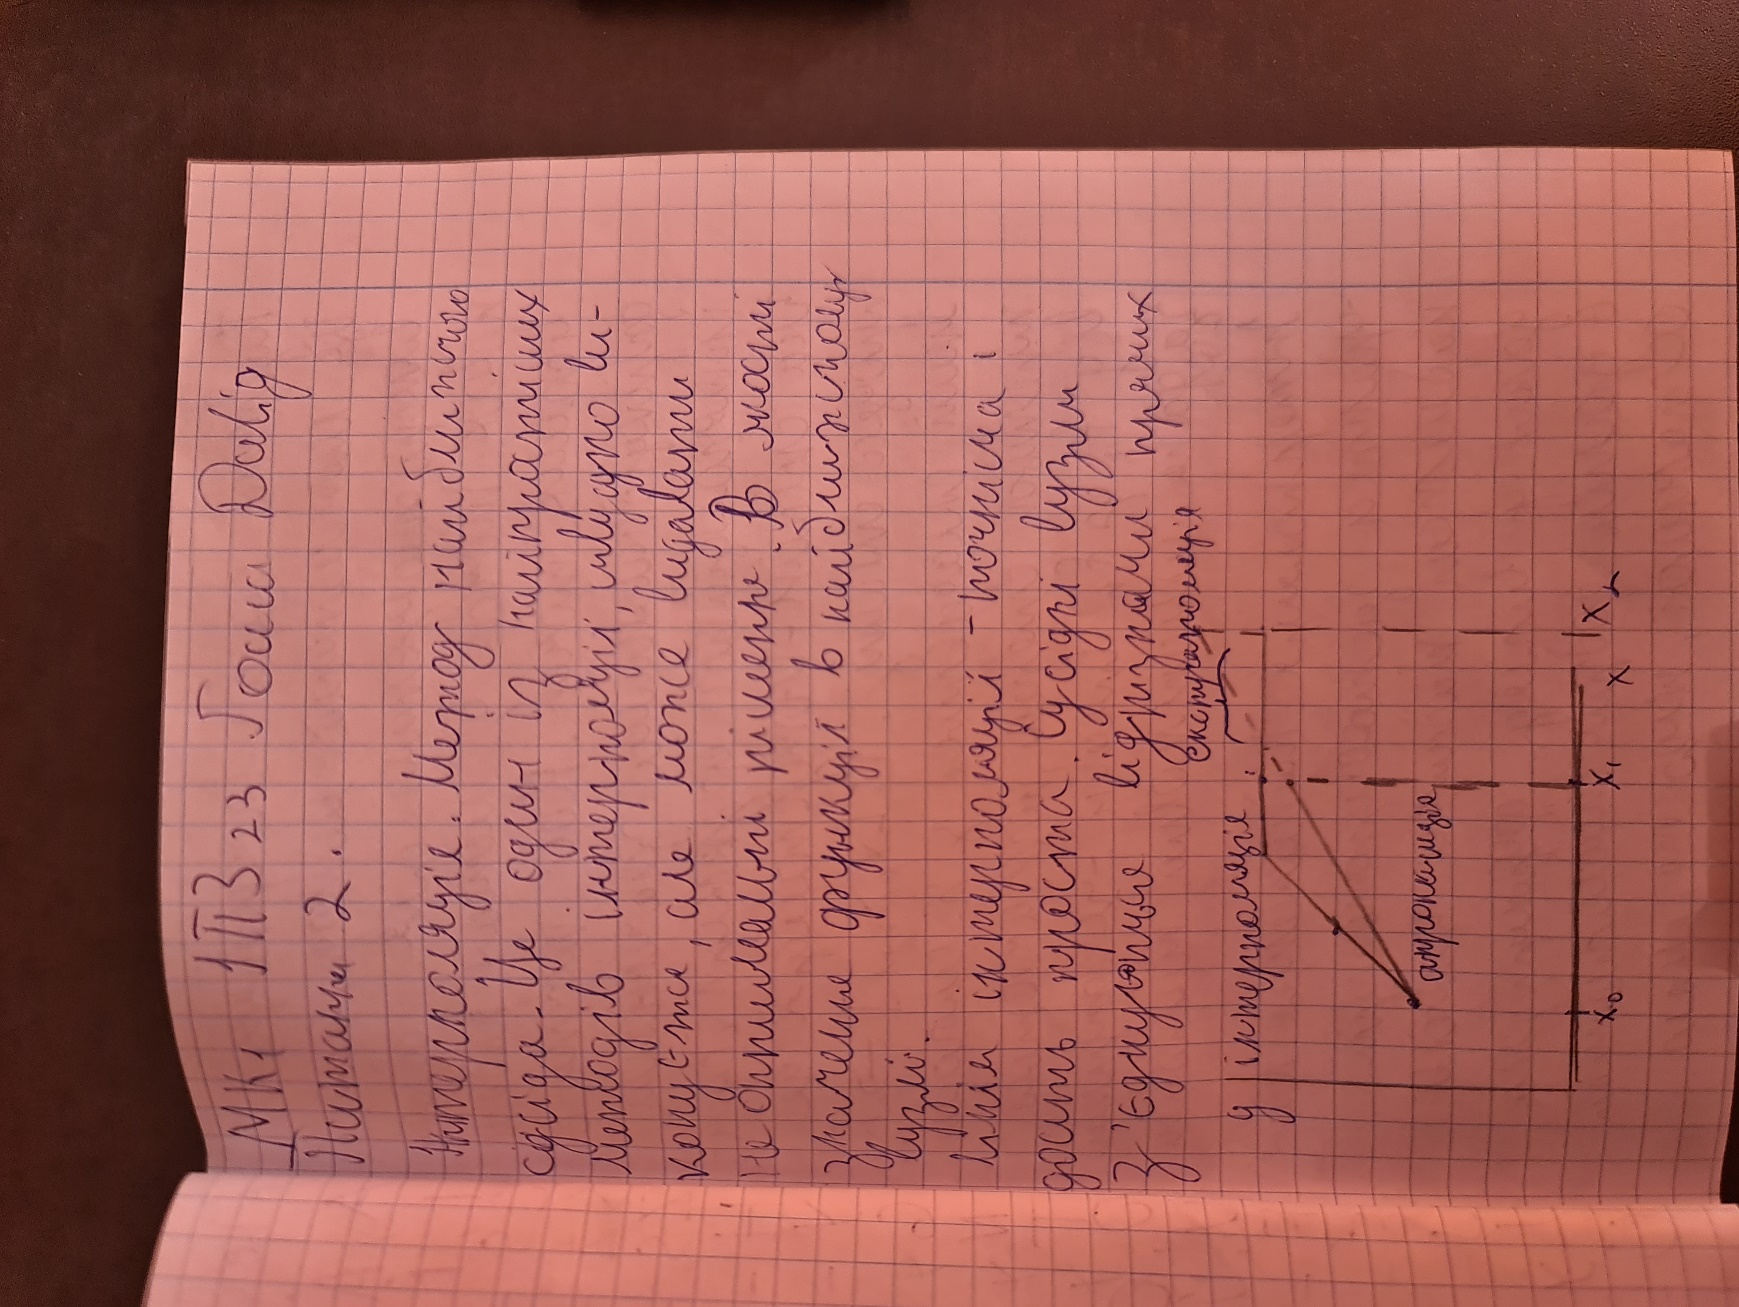 МК1 1ПЗ23 Гоша Давід
Питання 2.
Интерполяція. Метод найближчого
сусіда. Це один із найпростіших
методів інтерполяції, швидко ви-
конується, але може видавати
не оптимальні рішення. В якості
значення функції в найближчому
вузлі.
Лінія інтерполяції - точніша і
досить проста. Сусідні вузли
з'єднуються відрізками прямих
екстраполяція
y інтерполяція
апроксимація
x₀ x₁ x x₂